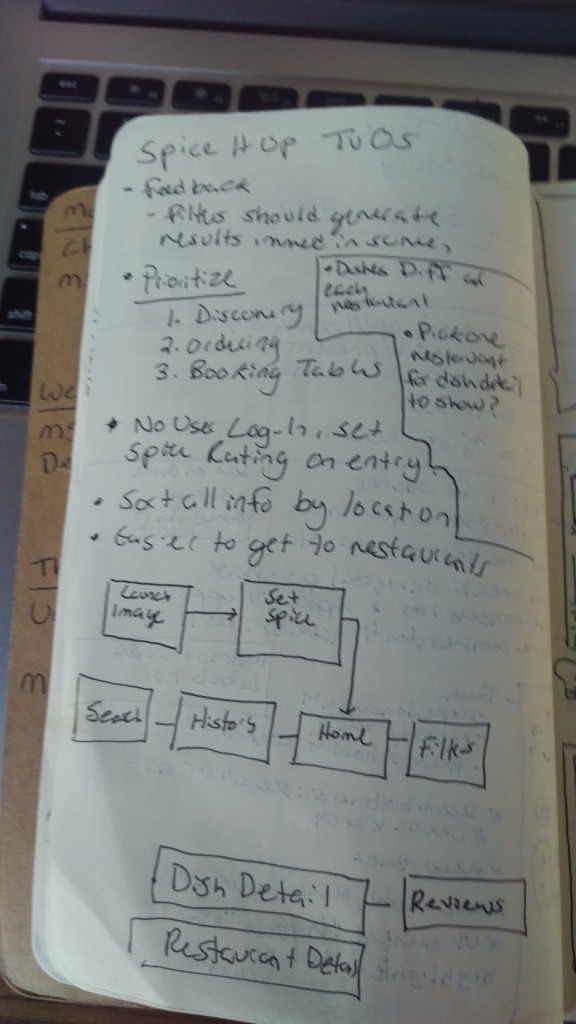 Spice It Up TVOS
- Feedback
- Filters should generate
results immed. in scene,
• Prioritize
1. Discovery
2. Ordering
3. Booking Tables
• Dishes Diff at
each
restaurant
• Pick one
restaurant
for dish detail
to show?
• No User Log-In, set
Spice Rating on entry
• Sort all info by location
• Easier to get to restaurants
Launch
Image
Set
Spice
Search
History
Home
Filters
Dish Detail
Reviews
Restaurant Detail
esc
tab
shift